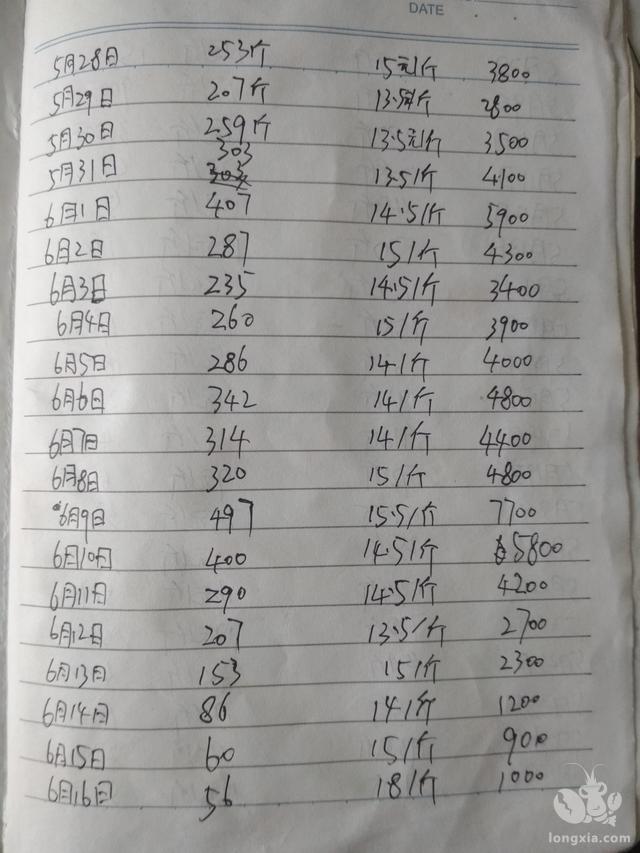 DATE
5月28日 253斤 15元/斤 3800
5月29日 207斤 13.5元/斤 2800
5月30日 259斤 13.5元/斤 3500
5月31日 303 13.5/斤 4100
6月1日 407 14.5/斤 5900
6月2日 287 15/斤 4300
6月3日 235 14.5/斤 3400
6月4日 260 15/斤 3900
6月5日 286 14/斤 4000
6月6日 342 14/斤 4800
6月7日 314 14/斤 4400
6月8日 320 15/斤 4800
6月9日 497 15.5/斤 7700
6月10日 400 14.5/斤 5800
6月11日 290 14.5/斤 4200
6月12日 207 13.5/斤 2700
6月13日 153 15/斤 2300
6月14日 86 14/斤 1200
6月15日 60 15/斤 900
6月16日 56 18/斤 1000
longxia.com